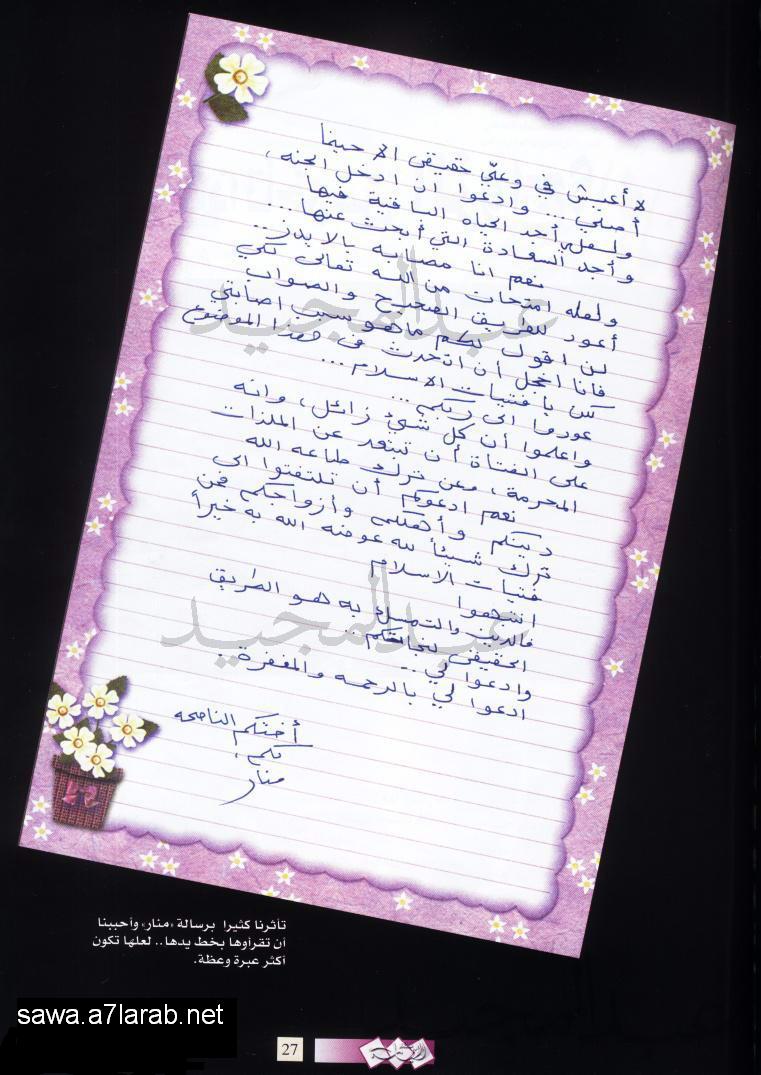 لا أعيش في وعيي حقيقي الا حينما
أصلي ... وادعوا ان ادخل الجنه ،
ولعلي أجد الحياه الباقية فيها
وأجد السعادة التي أبحث عنها ...
نعم انا مصابه بالايدز ..
ولعله امتحان من الله تعالى لكي
أعود للطريق الصحيح والصواب
لن اقول لكم ما هو سبب اصابتي
فانا اخجل أن اتحدث في هذا الموضوع
لكن يا فتيات الاسلام ...
عودوا الى ربكم ...
واعلموا أن كل شيئ زائل ، وانه
على الفتاة أن تبتعد عن الملذات
المحرمة ، وعن ترك طاعه الله
نعم ادعوكم أن تلتفتوا الى
دينكم وأهلكم وأزواجكم فمن
ترك شيئاً لله عوضه الله به خيراً
فتيات الاسلام
انتبهوا
فالدين والتمسك به هو الطريق
الحقيقي لنجاتكم ..
وادعوا لي ..
ادعوا لي بالرحمه والمغفرة .
أختكم الناصحه
لكم ،
منار
عبدالمجيد
عبدالمجيد
تأثرنا كثيرا برسالة «منار» وأحببنا
أن تقرأوها بخط يدها .. لعلها تكون
أكثر عبرة وعظة.
sawa.a7larab.net
27